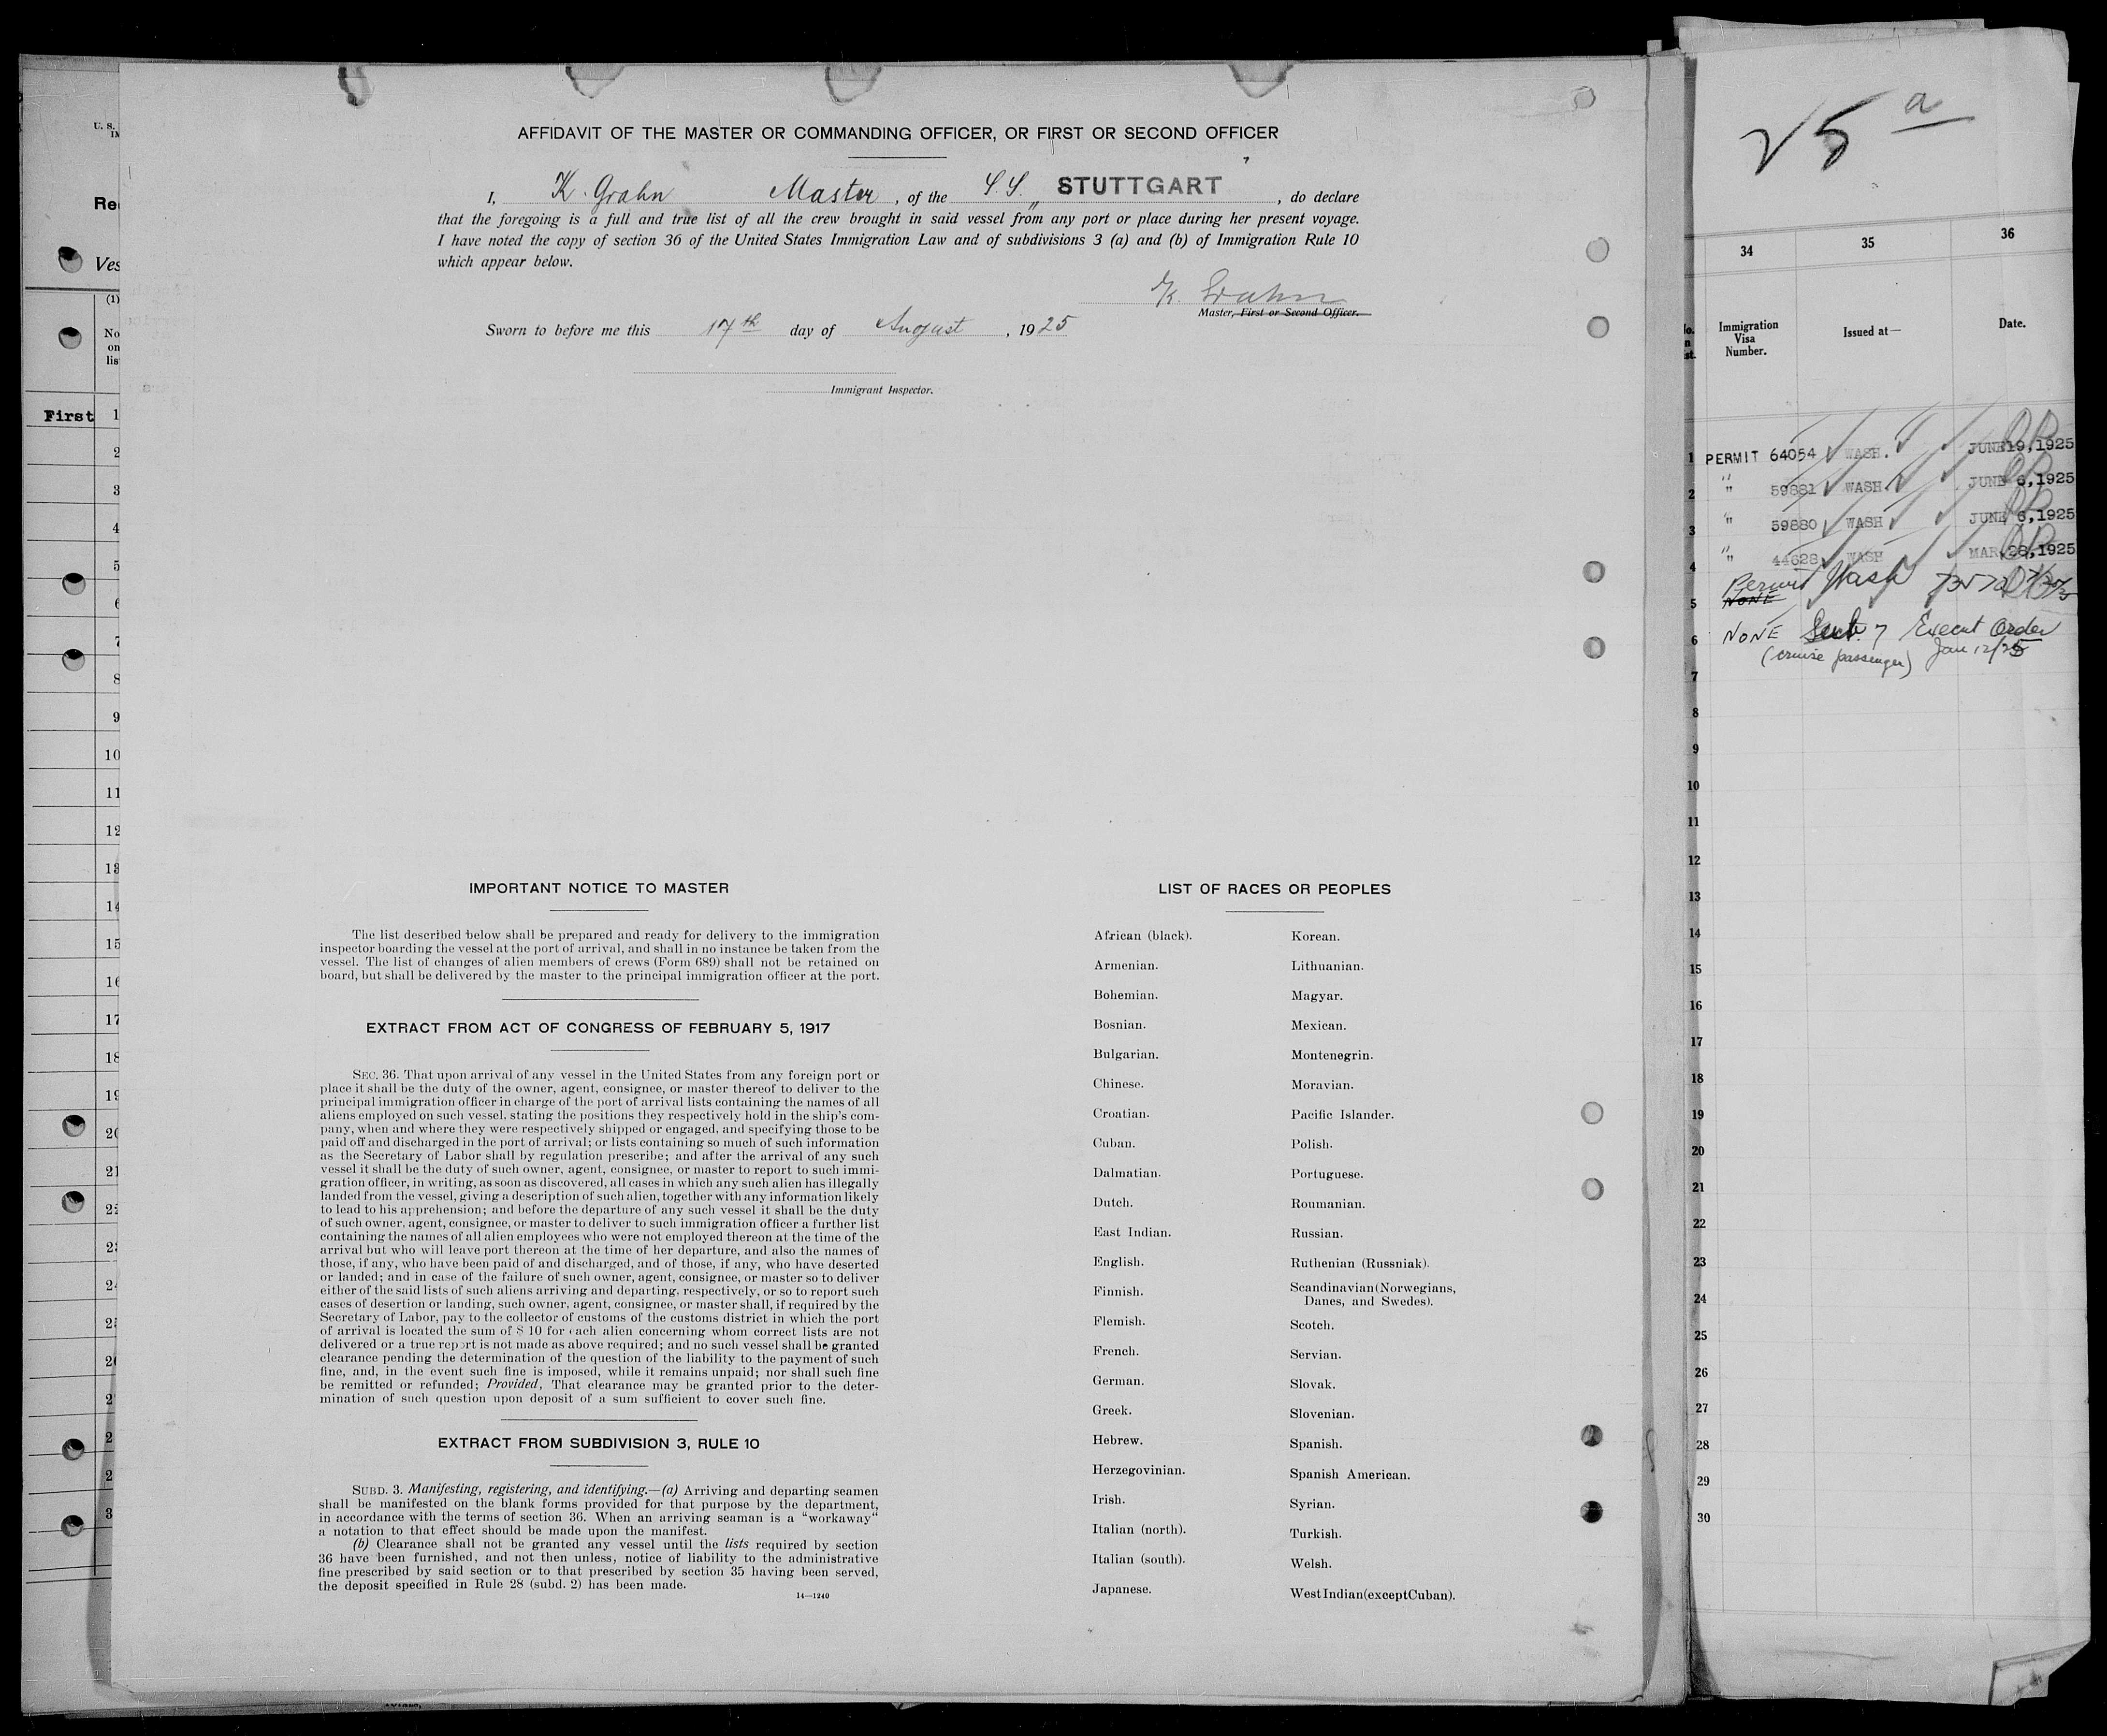 AFFIDAVIT OF THE MASTER OR COMMANDING OFFICER, OR FIRST OR SECOND OFFICER
I, K. Grahn Master, of the S.S. „STUTTGART", do declare
that the foregoing is a full and true list of all the crew brought in said vessel from any port or place during her present voyage.
I have noted the copy of section 36 of the United States Immigration Law and of subdivisions 3 (a) and (b) of Immigration Rule 10
which appear below.
K. Grahn
Master, First or Second Officer.
Sworn to before me this 17th day of August, 1925
Immigrant Inspector.
IMPORTANT NOTICE TO MASTER
The list described below shall be prepared and ready for delivery to the immigration
inspector boarding the vessel at the port of arrival, and shall in no instance be taken from the
vessel. The list of changes of alien members of crews (Form 689) shall not be retained on
board, but shall be delivered by the master to the principal immigration officer at the port.
EXTRACT FROM ACT OF CONGRESS OF FEBRUARY 5, 1917
SEC. 36. That upon arrival of any vessel in the United States from any foreign port or
place it shall be the duty of the owner, agent, consignee, or master thereof to deliver to the
principal immigration officer in charge of the port of arrival lists containing the names of all
aliens employed on such vessel, stating the positions they respectively hold in the ship's com-
pany, when and where they were respectively shipped or engaged, and specifying those to be
paid off and discharged in the port of arrival; or lists containing so much of such information
as the Secretary of Labor shall by regulation prescribe; and after the arrival of any such
vessel it shall be the duty of such owner, agent, consignee, or master to report to such immi-
gration officer, in writing, as soon as discovered, all cases in which any such alien has illegally
landed from the vessel, giving a description of such alien, together with any information likely
to lead to his apprehension; and before the departure of any such vessel it shall be the duty
of such owner, agent, consignee, or master to deliver to such immigration officer a further list
containing the names of all alien employees who were not employed thereon at the time of the
arrival but who will leave port thereon at the time of her departure, and also the names of
those, if any, who have been paid of and discharged, and of those, if any, who have deserted
or landed; and in case of the failure of such owner, agent, consignee, or master so to deliver
either of the said lists of such aliens arriving and departing, respectively, or so to report such
cases of desertion or landing, such owner, agent, consignee, or master shall, if required by the
Secretary of Labor, pay to the collector of customs of the customs district in which the port
of arrival is located the sum of $ 10 for each alien concerning whom correct lists are not
delivered or a true report is not made as above required; and no such vessel shall be granted
clearance pending the determination of the question of the liability to the payment of such
fine, and, in the event such fine is imposed, while it remains unpaid; nor shall such fine
be remitted or refunded; Provided, That clearance may be granted prior to the deter-
mination of such question upon deposit of a sum sufficient to cover such fine.
EXTRACT FROM SUBDIVISION 3, RULE 10
SUBD. 3. Manifesting, registering, and identifying.—(a) Arriving and departing seamen
shall be manifested on the blank forms provided for that purpose by the department,
in accordance with the terms of section 36. When an arriving seaman is a “workaway“
a notation to that effect should be made upon the manifest.
(b) Clearance shall not be granted any vessel until the lists required by section
36 have been furnished, and not then unless, notice of liability to the administrative
fine prescribed by said section or to that prescribed by section 35 having been served,
the deposit specified in Rule 28 (subd. 2) has been made.
14—1240
LIST OF RACES OR PEOPLES
African (black).
Armenian.
Bohemian.
Bosnian.
Bulgarian.
Chinese.
Croatian.
Cuban.
Dalmatian.
Dutch.
East Indian.
English.
Finnish.
Flemish.
French.
German.
Greek.
Hebrew.
Herzegovinian.
Irish.
Italian (north).
Italian (south).
Japanese.
Korean.
Lithuanian.
Magyar.
Mexican.
Montenegrin.
Moravian.
Pacific Islander.
Polish.
Portuguese.
Roumanian.
Russian.
Ruthenian (Russniak).
Scandinavian (Norwegians,
Danes, and Swedes).
Scotch.
Servian.
Slovak.
Slovenian.
Spanish.
Spanish American.
Syrian.
Turkish.
Welsh.
West Indian (except Cuban).
U. S.
Ves
(1)
No
on
lis
First 1
2
3
4
5
6
7
8
9
10
11
12
13
14
15
16
17
18
19
20
21
25 a
34 35 36
Immigration
Visa
Number.
Issued at—
Date.
1 PERMIT 64054 WASH. JUNE 19, 1925
2 " 59881 WASH. JUNE 6, 1925
3 " 59880 WASH JUNE 6, 1925
4 " 44628 WASH MAR. 28, 1925
Permit Wash
5 NONE
6 NONE Sect. 7 Execut Order
(cruise passenger) Jan 12/25
7
8
9
10
11
12
13
14
15
16
17
18
19
20
21
22
23
24
25
26
27
28
29
30